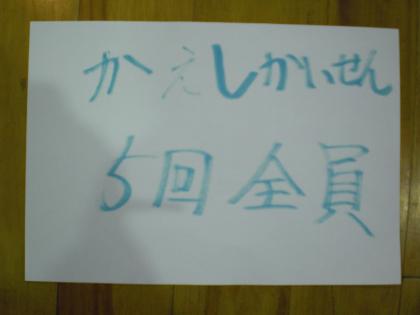 かえしかいせん
5回全員